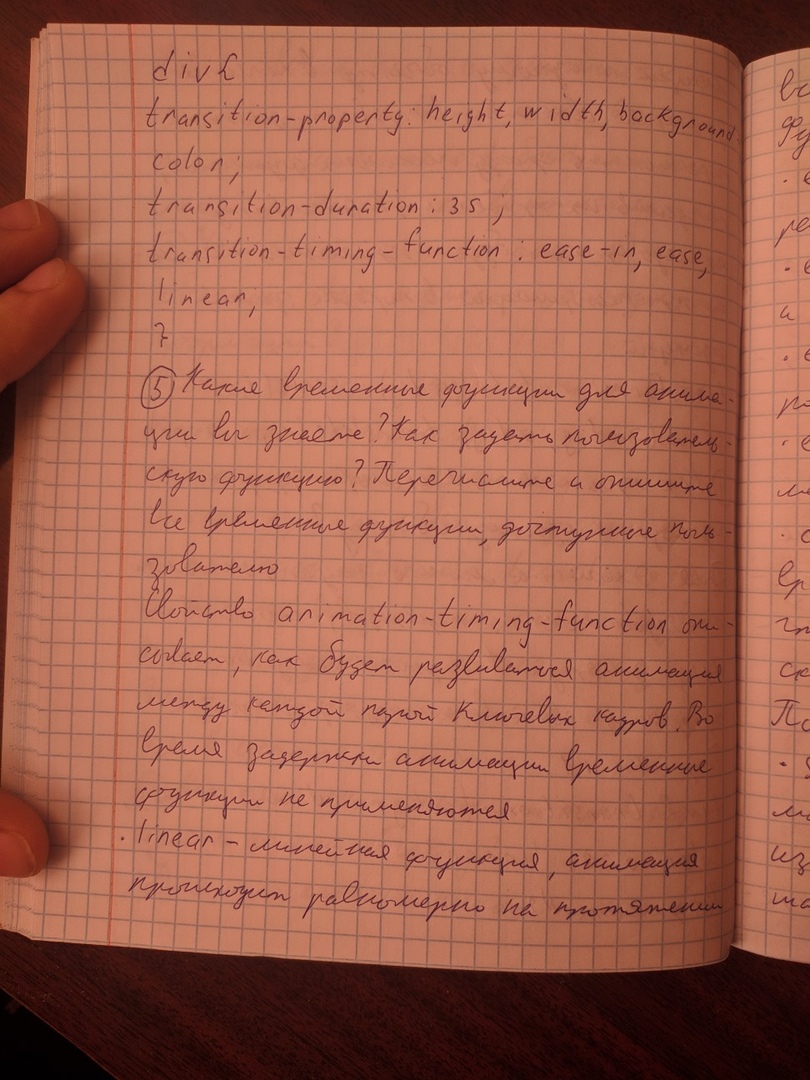 div{
transition-property: height, width, background-
color;
transition-duration: 3s;
transition-timing-function: ease-in, ease,
linear;
}
5 Какие временные функции для анима-
ции вы знаете? Как задать пользователь-
скую функцию? Перечислите и опишите
все временные функции, доступные поль-
зователю
Свойство animation-timing-function опи-
сывает, как будет развиваться анимация
между каждой парой ключевых кадров. Во
время задержки анимации временные
функции не применяются
· linear - линейная функция, анимация
происходит равномерно на протяжении